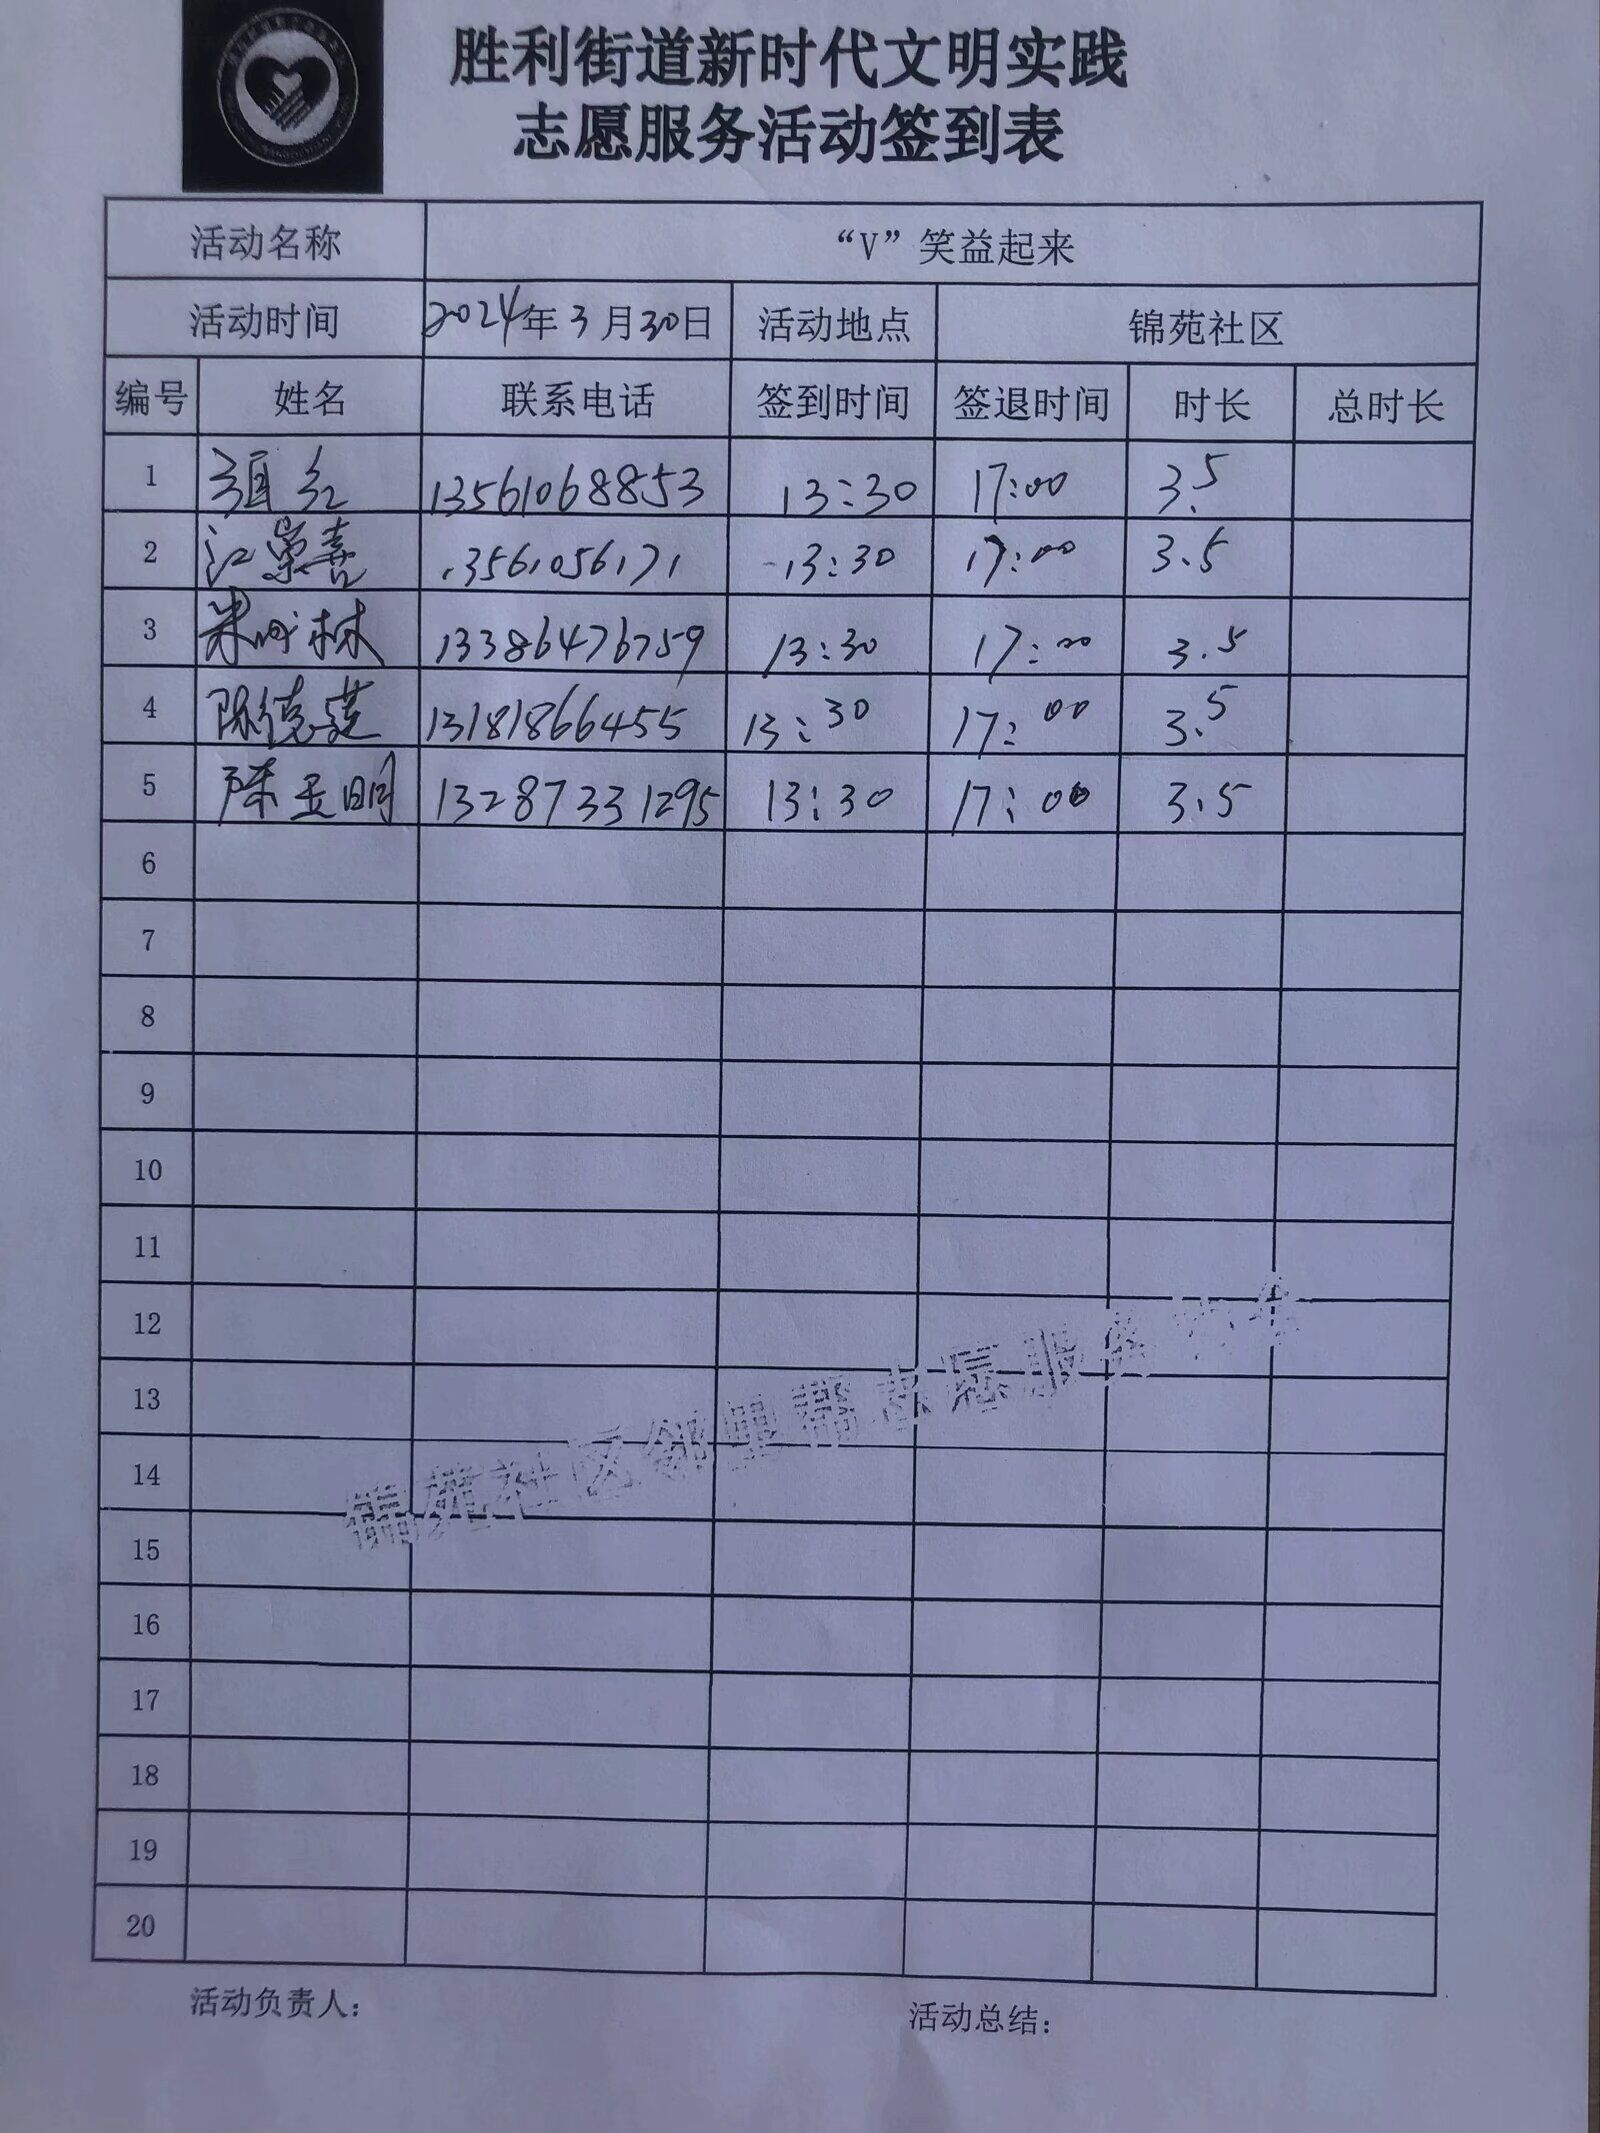 胜利街道新时代文明实践
志愿服务活动签到表
活动名称 “V”笑益起来
活动时间 2024年3月30日 活动地点 锦苑社区
编号 姓名 联系电话 签到时间 签退时间 时长 总时长
1 13561068853 13:30 17:00 3.5
2 江崇喜 13561056171 13:30 17:00 3.5
3 13386476759 13:30 17:00 3.5
4 陈德莲 13181866455 13:30 17:00 3.5
5 陈玉明 13287331295 13:30 17:00 3.5
6
7
8
9
10
11
12
13
14
15
16
17
18
19
20
锦苑社区邻里帮志愿服务
活动负责人：
活动总结：